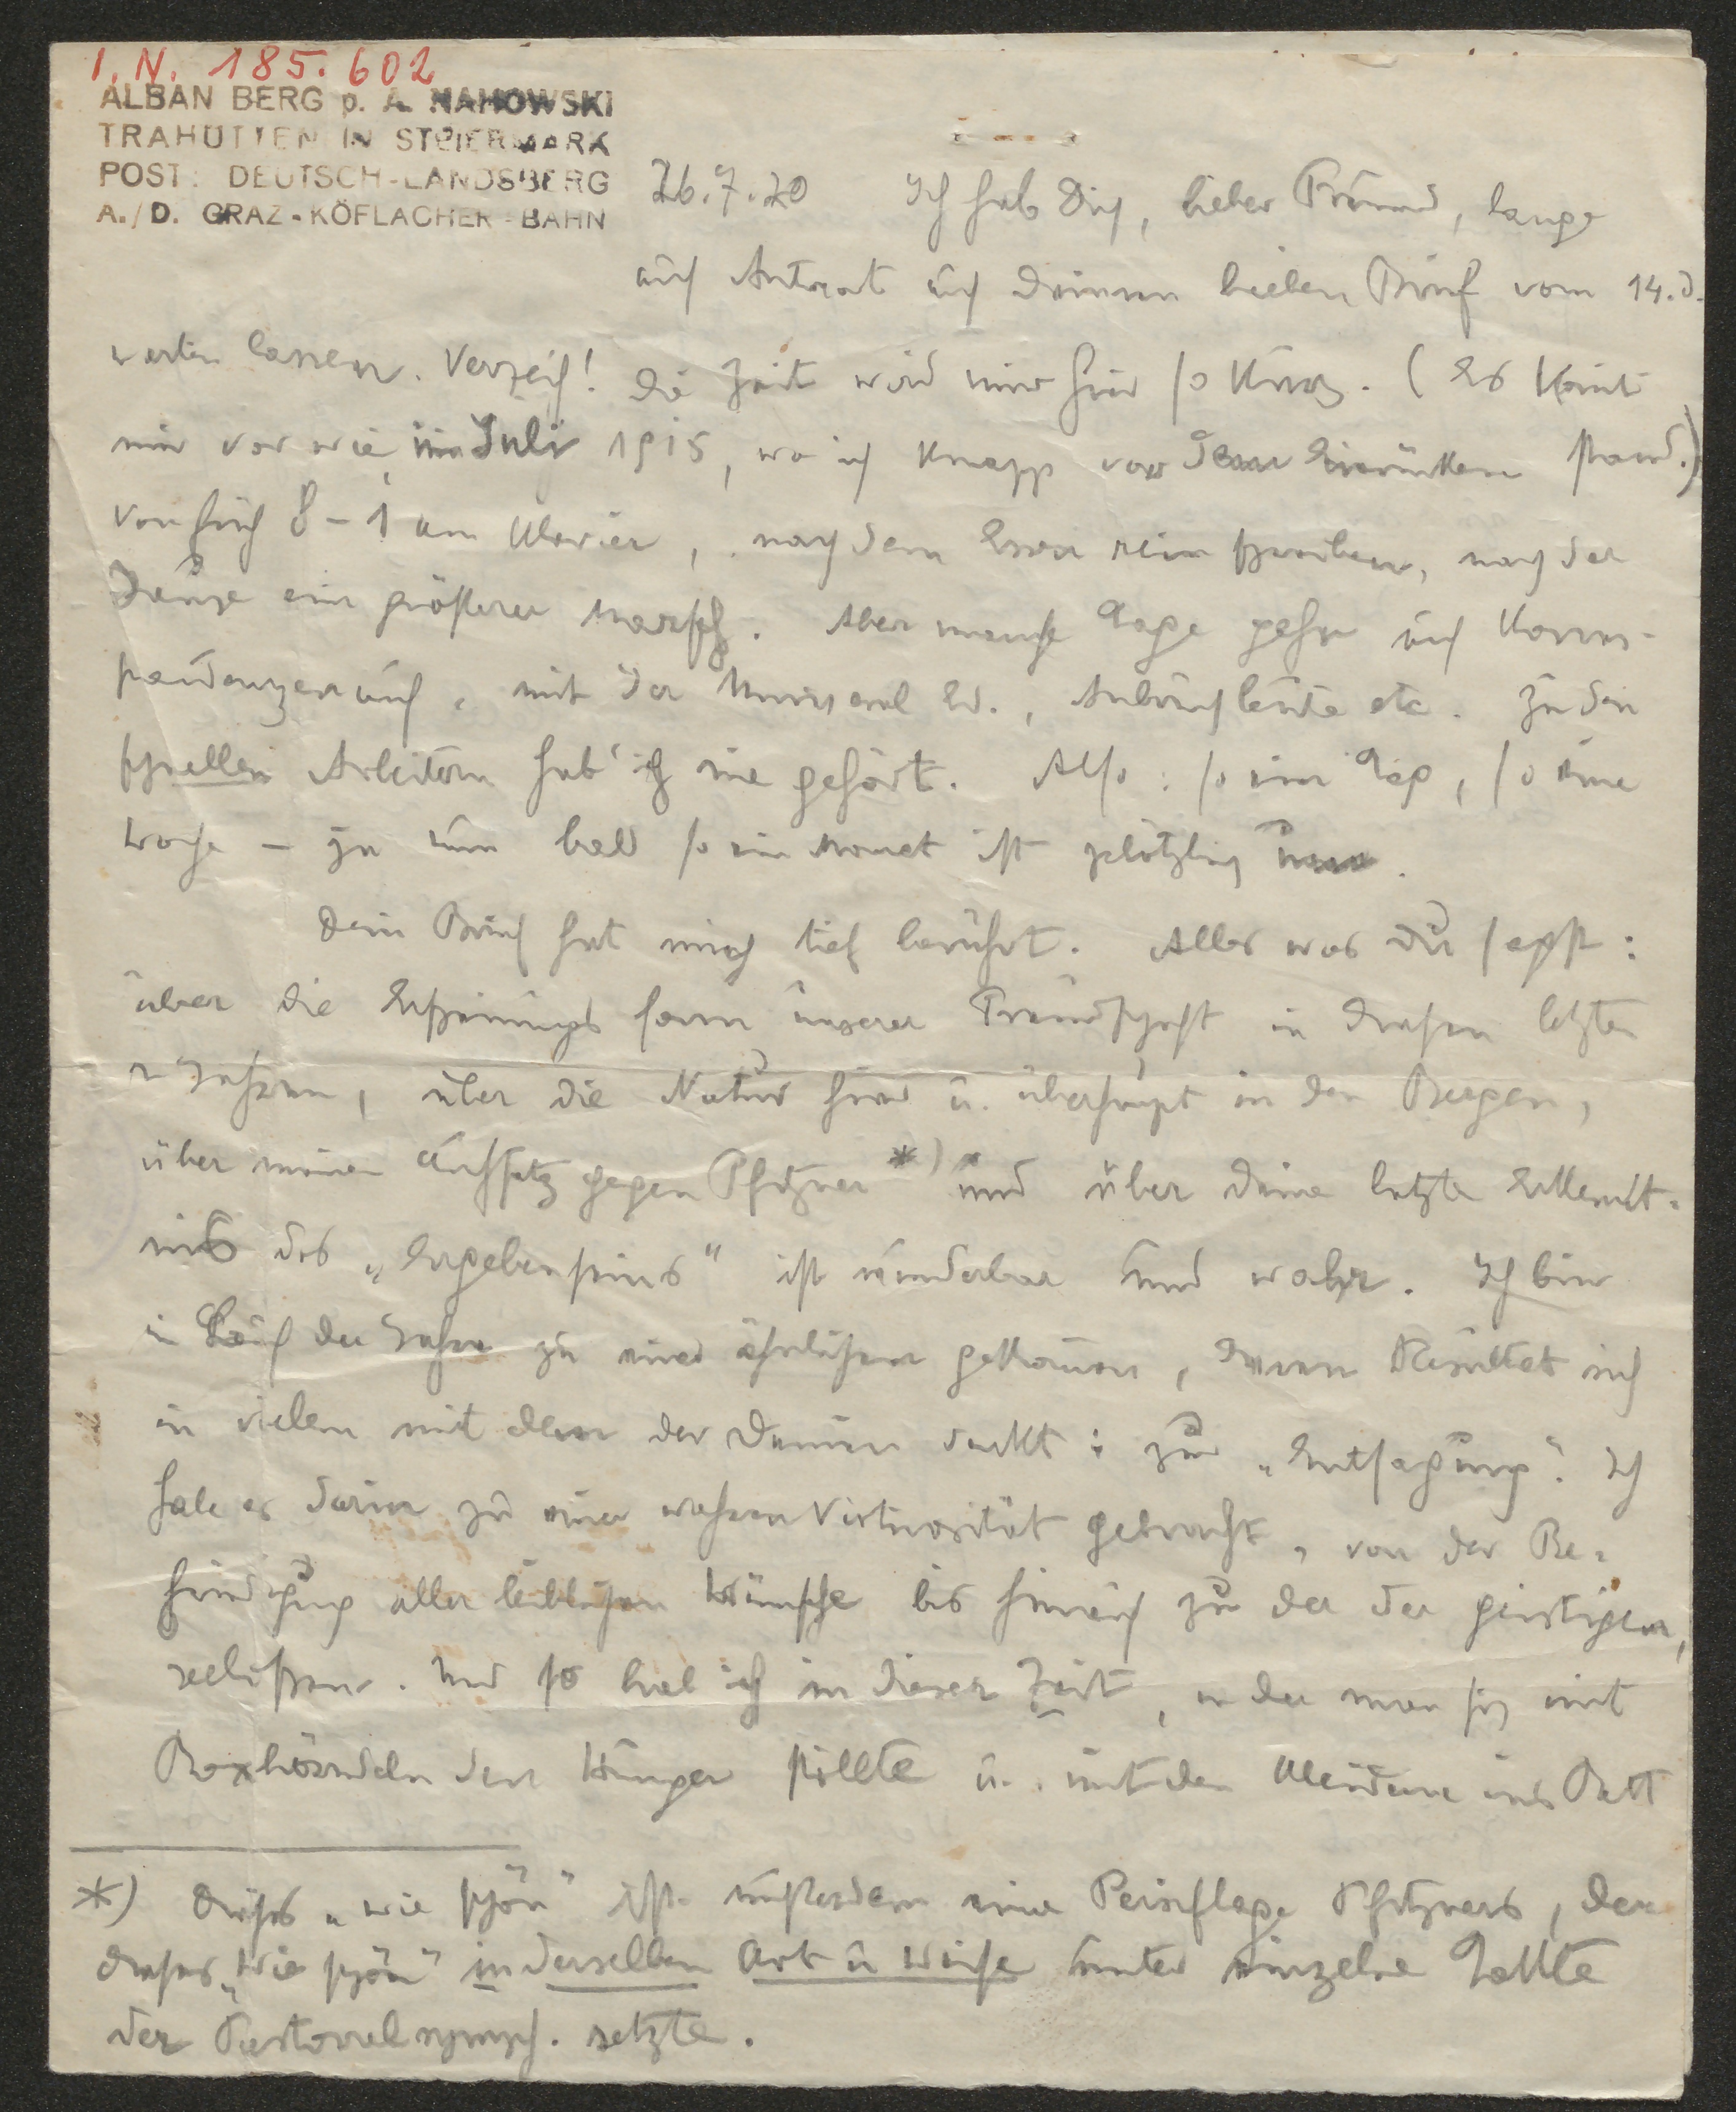 I. N. 185.602
ALBAN BERG p. A. NAHOWSKI
TRAHÜTTEN IN STEIERMARK
POST: DEUTSCH-LANDSBERG
A./D. GRAZ-KÖFLACHER-BAHN
26.7.20 Ich hab Dich, lieber Freund, lange
auf Antwort auf Deinen lieben Brief vom 14. d.
warten lassen. Verzeih! Die Zeit wird mir hier so kurz. (Es kommt
mir vor wie im Juli 1915, wo ich knapp vor dem Einrücken stand.)
Von früh 8-1 am Klavier, nach dem Essen rein schreiben, nach der
Jause ein größerer Marsch. Aber manche Tage gehn auf Korres-
pondenzen auf, mit der Universal Ed., Anbruchleute etc. Zu den
schnellen Arbeitern hab' ich nie gehört. Also: so ein Tag, so eine
Woche – ja nun bald so ein Monat ist plötzlich um.
Dein Brief hat mich tief berührt. Alles was Du sagst:
über die Erscheinungsform unserer Freundschaft in diesen letzten
2 Jahren, über die Natur hier u. überhaupt in den Bergen,
über meinen Aufsatz gegen Pfitzner *) und über Deine letzte Erkennt-
niß des „Ergebenseins" ist wunderbar und wahr. Ich bin
im Lauf der Jahre zu einer ähnlichen gekommen, deren Resultat sich
in vielem mit dem der Deinen deckt: zur „Entsagung". Ich
habe es darin zu einer wahren Virtuosität gebracht, von der Be-
friedigung aller leiblichen Wünsche bis hinauf zu der der geistigen,
seelischen. Und so hab ich in dieser Zeit, in der man sich mit
Boxhörndeln den Hunger stillte u. mit den Kleidern ins Bett
*) Dieses „wie schön" ist außerdem eine Persiflage Pfitzners, der
dieses „Wie schön" in derselben Art u Weise unter einzelne Takte
der Pastoralsymph. setzte.